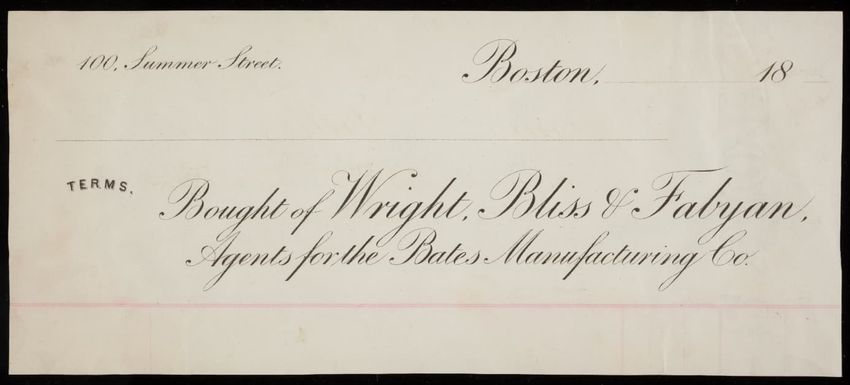 100, Summer Street.
Boston, 18
TERMS.
Bought of Wright, Bliss & Fabyan,
Agents for the Bates Manufacturing Co.